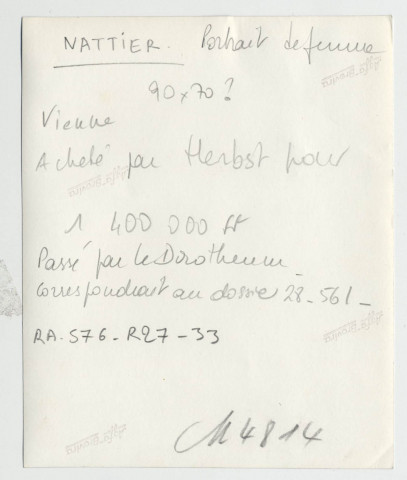 NATTIER. Portrait de femme
90x70?
Vienne
Acheté par Herbst pour
1 400 000 ff
Passé par le Dorotheum
correspondrait au dossier 28-561-
RA-576-R27-33
M4814